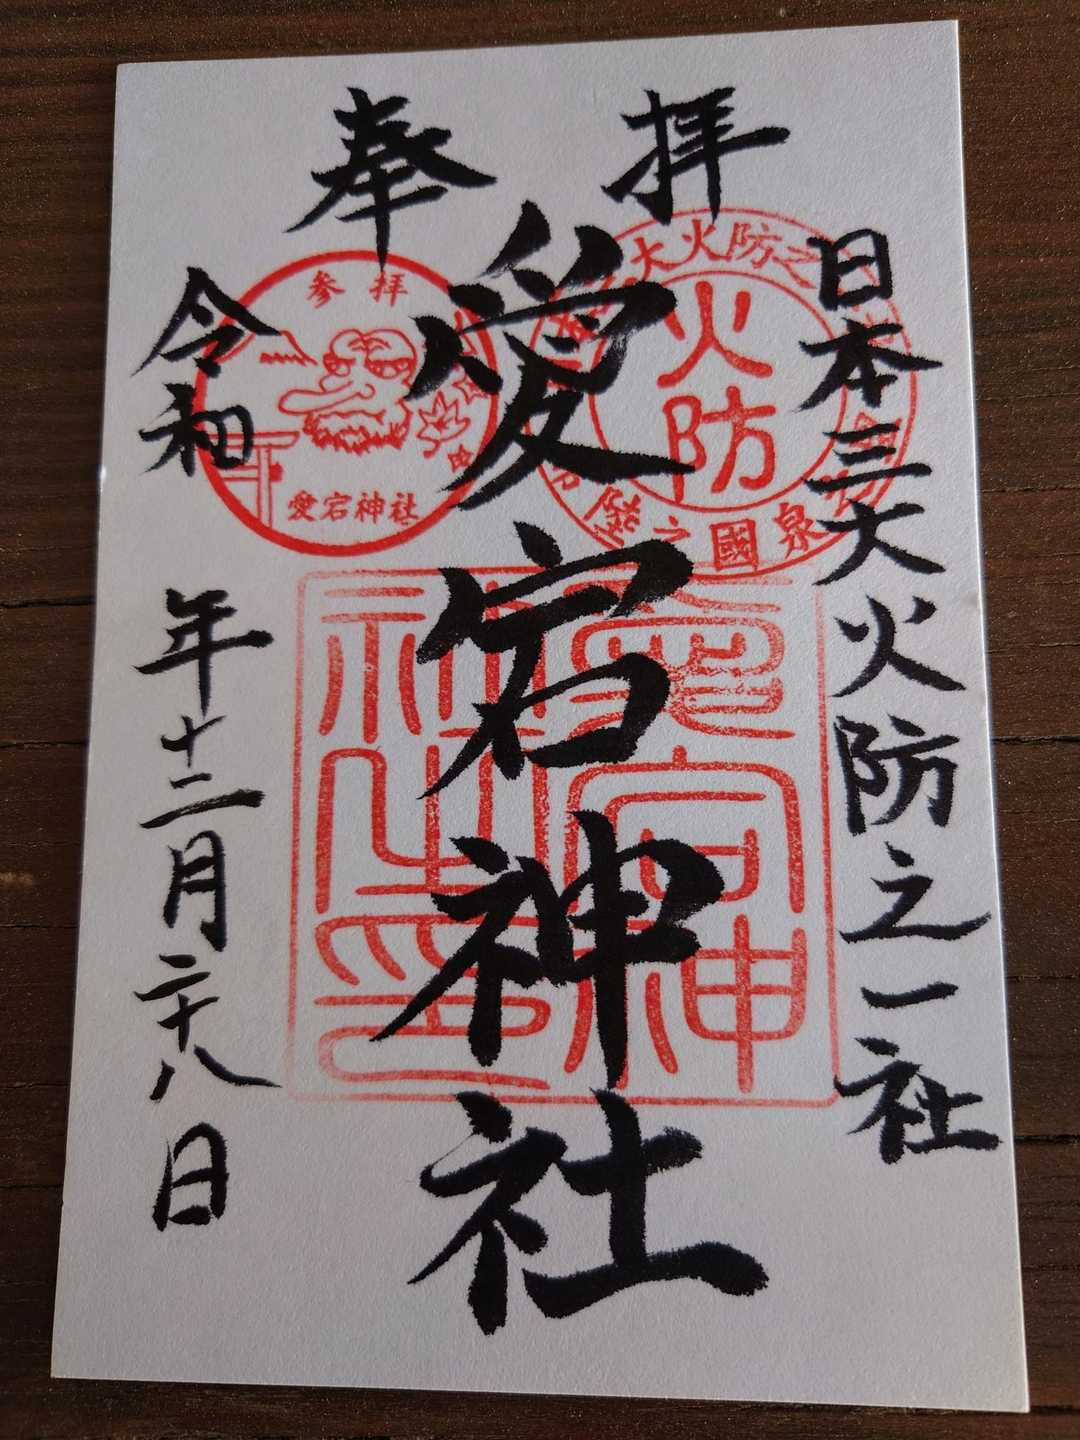 奉拝
日本三大火防之一社
愛宕神社
令和 年十二月二十八日
参拝
愛宕神社
大火防之
火防
之國泉
愛宕神
社之印